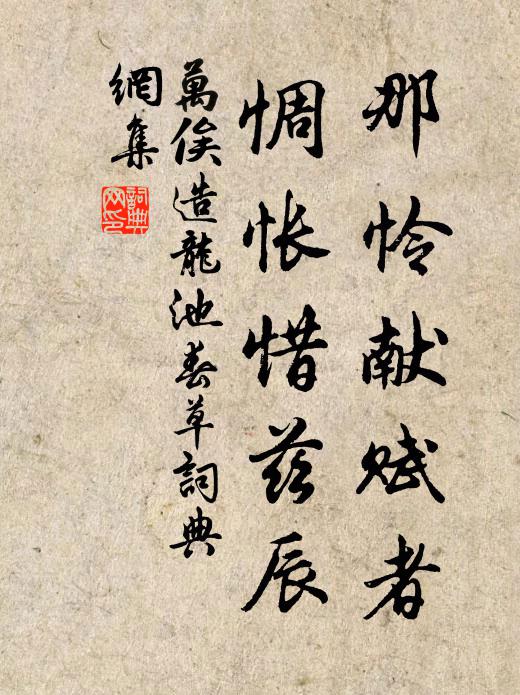 那怜献赋者
惆怅惜兹辰
萬俟造龍池春草詞典
網集
詞典網印